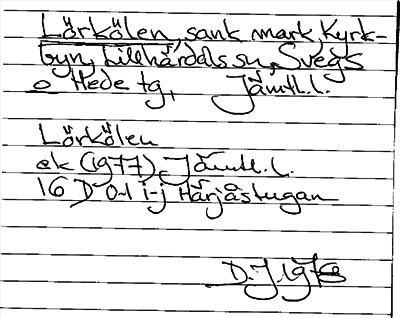 Lörkölen, sank mark, Kyrk-
byn, Lillhärdals sn, Svegs
o Hede tg, Jämtl.l.
Lörkölen
ek (1977), Jämtl.l.
16 D 0-1 i-j Härjåstugan
D.J. 1978